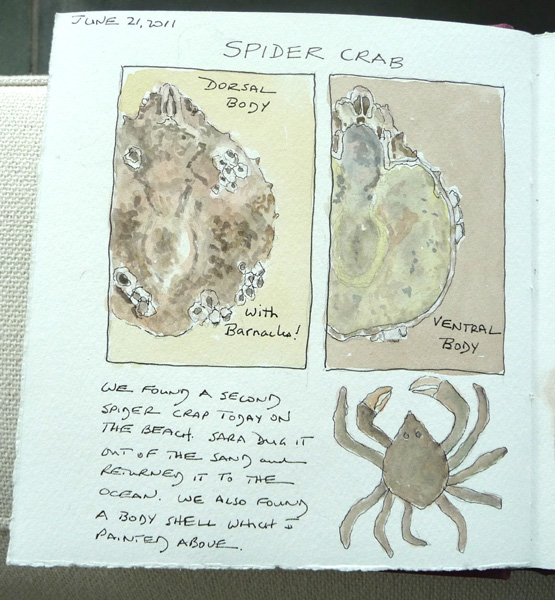 JUNE 21, 2011
SPIDER CRAB
DORSAL
BODY
With
Barnacles!
VENTRAL
BODY
WE FOUND A SECOND
SPIDER CRAP TODAY ON
THE BEACH. SARA DUG IT
OUT OF THE SAND and
RETURNED IT TO THE
OCEAN. WE ALSO FOUND
A BODY SHELL WHICH I
PAINTED ABOVE.